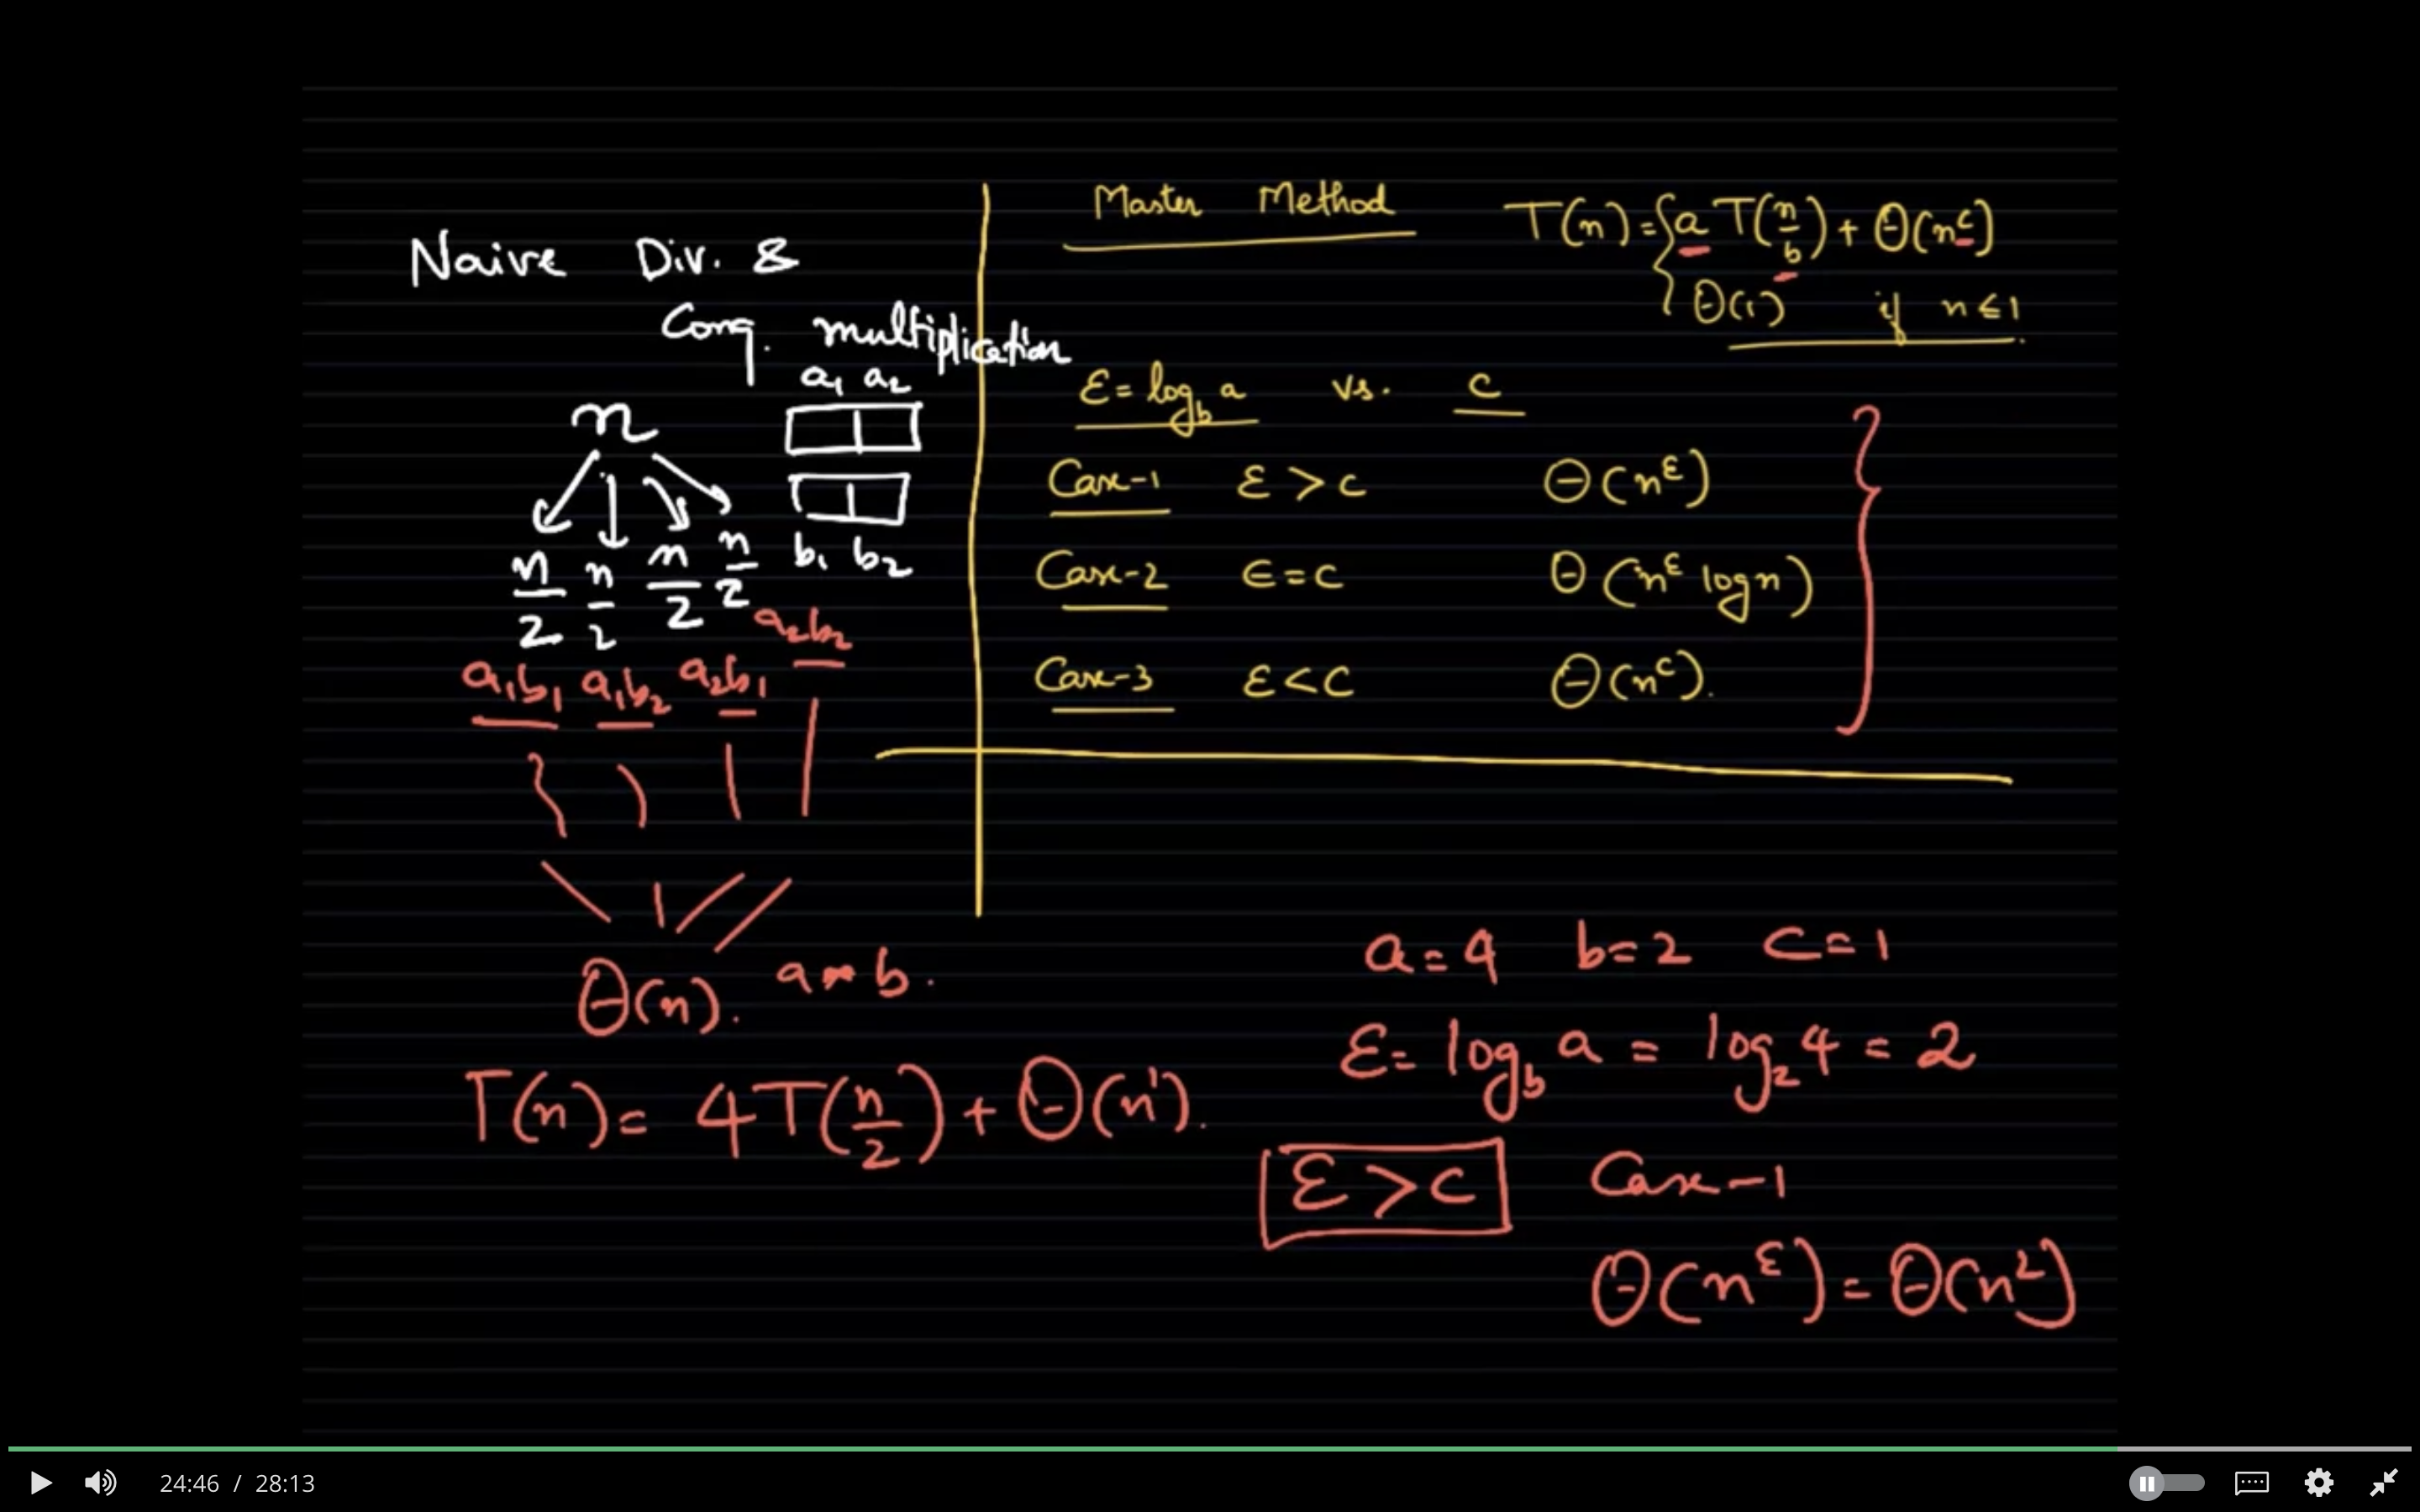 Naive Div. &
Conq. multiplication
a₁ a₂
n
b₁ b₂
n/2 n/2 n/2 n/2
a₁b₁ a₁b₂ a₂b₁ a₂b₂
Θ(n). a * b.
T(n) = 4T(n/2) + Θ(n¹).
Master Method T(n) = { a T(n/b) + Θ(n^c)
Θ(1) if n ≤ 1.
ε = log_b a vs. c
Case-1 ε > c Θ(n^ε)
Case-2 ε = c Θ(n^ε log n)
Case-3 ε < c Θ(n^c).
a = 4 b = 2 c = 1
ε = log_b a = log₂ 4 = 2
ε > c Case-1
Θ(n^ε) = Θ(n²)
24:46 / 28:13